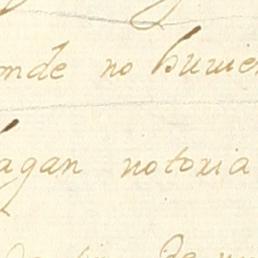 onde no huvie
agan notoria